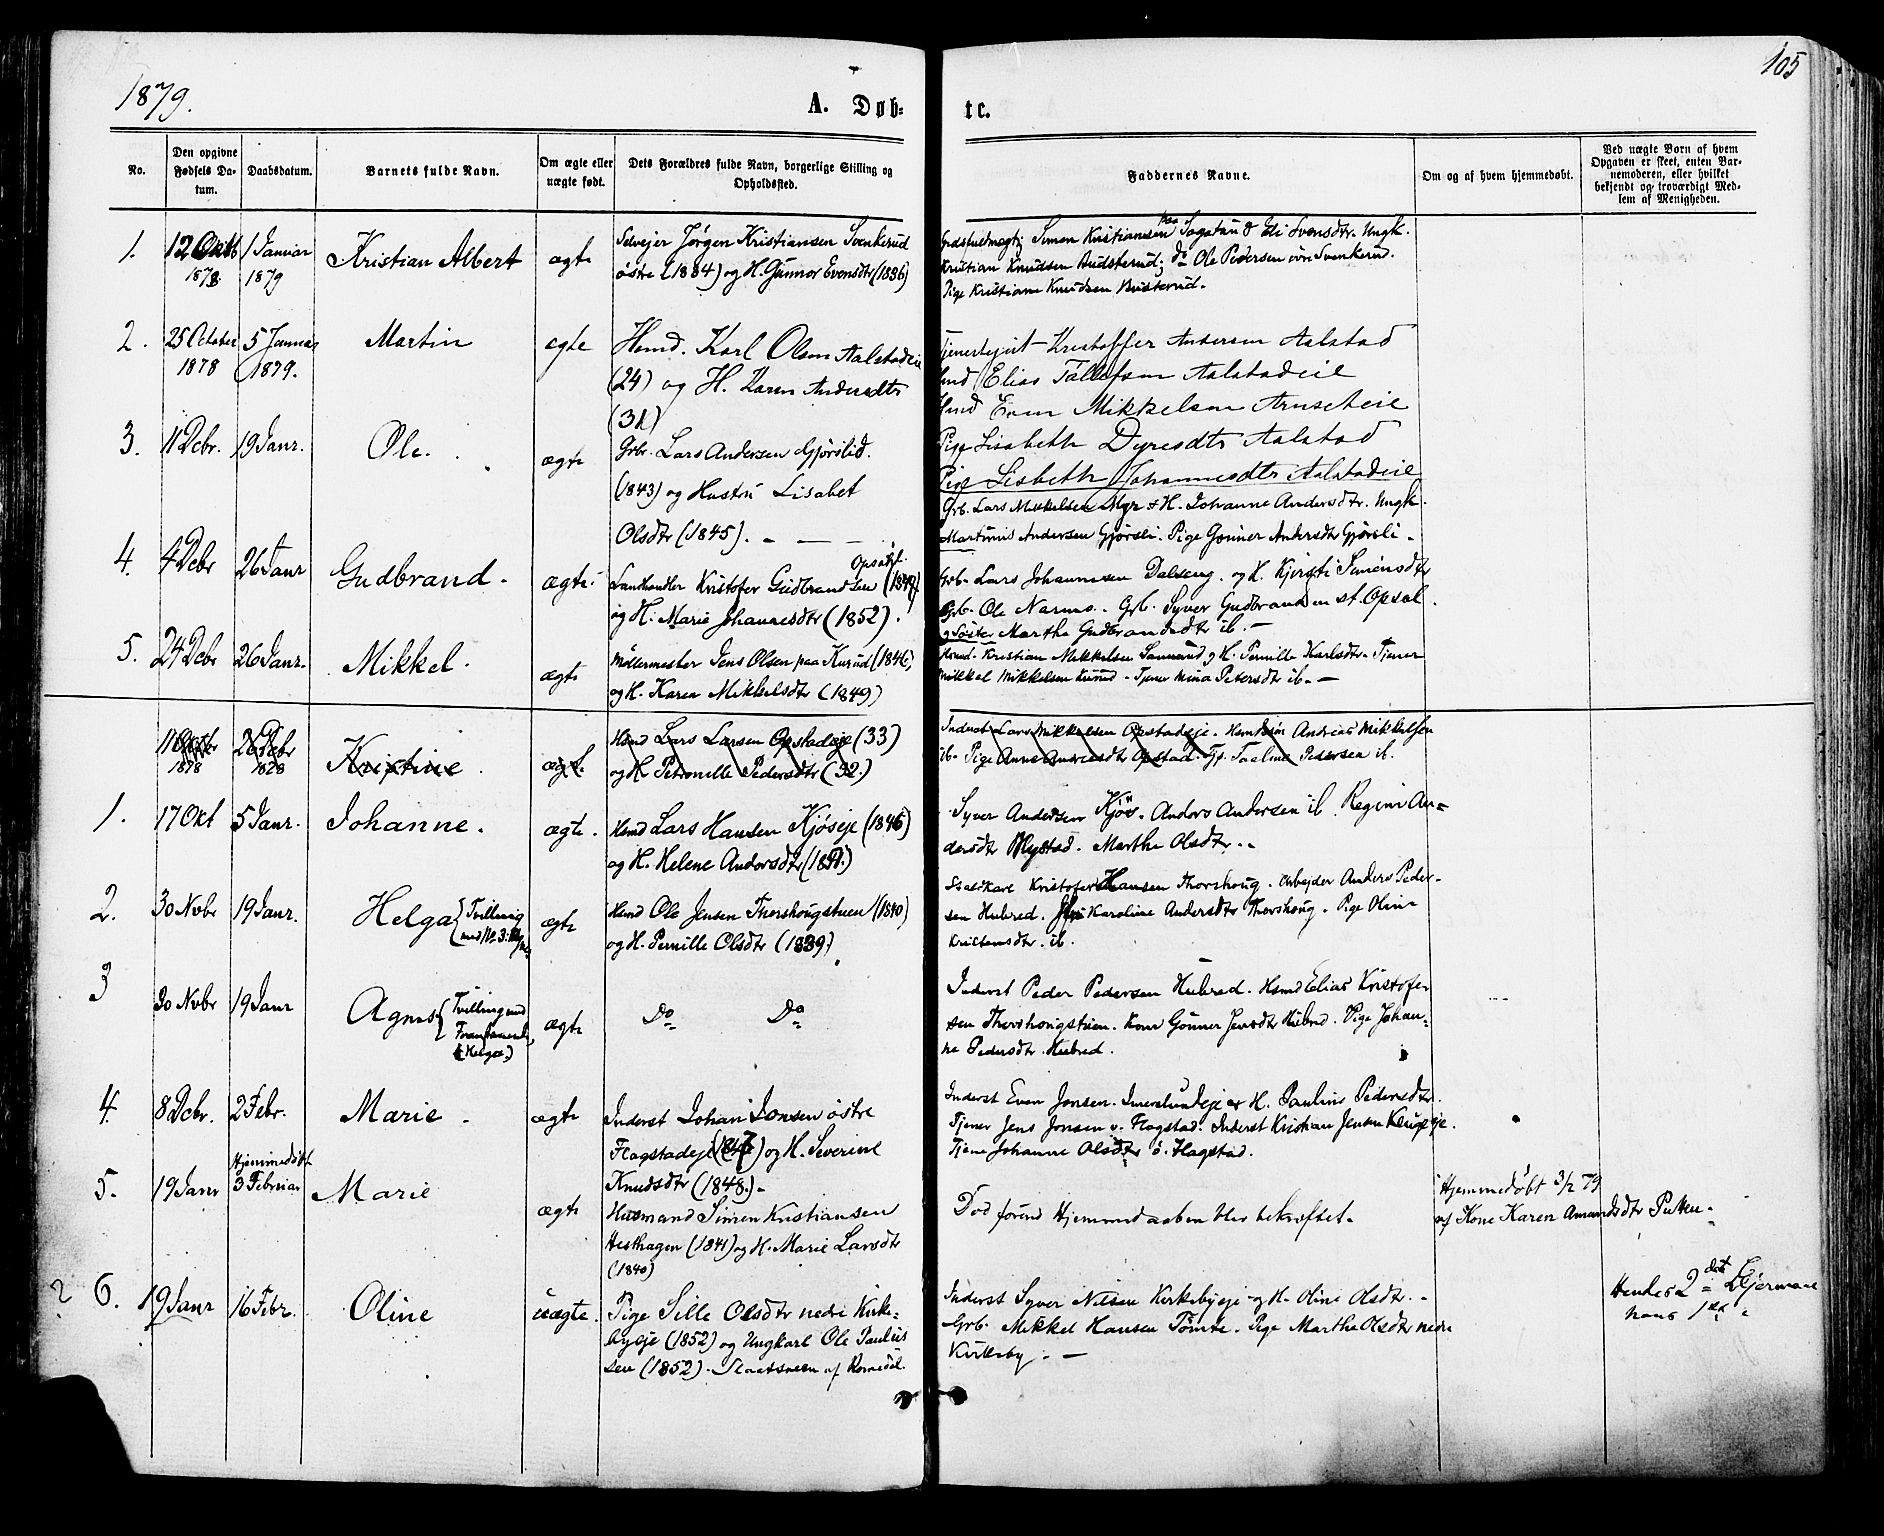 1879.
A. Døb-
tc.
105
No.
Den opgivne Fødsels Da-tum.
Daabsdatum.
Barnets fulde Navn.
Om ægte eller uægte født.
Dets Forældres fulde Navn, borgerlige Stilling og Opholdssted.
Faddernes Navne.
Om og af hvem hjemmedøbt.
Ved uægte Born af hvem Opgaven er skeet, enten Bar-nemoderen, eller hvilket bekjendt og troværdigt Med-lem af Menigheden.
1. 12 Oktb 1 Januar Kristian Albert ægte
1878 1879
Selvejer Jørgen Kristiansen Svenkerud
østre (1834) og H. Gunnor Evensdtr (1836)
Simon Kristiansen paa Sagatun & Eli Svensdtr. Ungk.
Kristian Knudsen Budsterud; do Ole Pedersen øvre Svenkerud.
Pige Kristiane Knudsen Busterud.
2. 25 October 5 Januar Martin ægte
1878 1879.
Hsmd. Karl Olsen Aalstadeie
(24) og H. Karen Andersdtr
(31)
Kristoffer Andersen Aalstad
Elias Tollefsen Aalstadeie
Even Mikkelsen Arnseteie
Pige Lisabeth Dyresdtr Aalstad
Pige Lisbeth Johannesdtr Aalstadeie
3. 11 Dcbr. 19 Janr. Ole. ægte
Grbr. Lars Andersen Gjørslid.
(1843) og Hustru Lisabet
Olsdtr (1845). - — —
Grb. Lars Mikkelsen Myr & H. Johanne Andersdtr. Ungk.
Martinus Andersen Gjørsli. Pige Gonner Andersdtr Gjørsli.
4. 4 Dcbr 26 Janr Gudbrand. ægte.
Opsal
Landhandler Kristofer Gudbrandsen (1847)
og H. Marie Johannesdtr (1852).
Grb. Lars Johannesen Dalseng. og H. Kjersti Simensdtr
Grb. Ole Narmo. Grb. Syver Gudbrandsen st. Opsal.
og Søster Marthe Gudbrandsdtr ib. —
5. 24 Dcbr 26 Janr. Mikkel. ægte
Møllermester Jens Olsen paa Kurud (1846)
og H. Karen Mikkelsdtr (1849)
Kristian Mikkelsen og H. Pernille Karlsdtr. Tjener
Mikkel Mikkelsen Kurud - Tjener Mina Petersdtr ib. —
11 Octbr 26 Dcbr Kristine. ægt.
1878 1878
Hsmd Lars Larsen Opstadeje (33)
og H. Petronille Pedersdtr (32.)
Inderst Lars Mikkelsen Opstadeje. Andreas Mikkelsen
ib. Pige Anne Andreasdtr Opstad. Pedersen ib.
1. 17 Okt 5 Janr. Johanne. ægte.
Hsmd Lars Hansen Kjøseje (1846)
og H. Helene Andersdtr
Syver Andersen Kjøs. Anders Andersen ib. Regine An=
dersdtr Marthe Olsdtr.
2. 30 Nvbr 19 Janr. Helga {Tvilling med No 3. ægte
Hsmd Ole Jensen Thorshougstuen (1840)
og H. Pernille Olsdtr (1839)
Kristofer Hansen Thorshoug. Arbejder Anders Peder-
sen Hubred. Karoline Andersdtr Thorshoug. Pige Oline
Kristensdtr. ib.
3 30 Nvbr 19 Janr Agnes {Tvilling med Foranstaaende Helga.) ægte
Do Do
Inderst Peder Pedersen Hubred. Hsmd Elias Kristofer
sen Thorshougstuen. Kone Gonner Jensdtr Hubred. Pige Johan-
ne Pedersdtr. Hubred.
4. 8 Dcbr. 2 Febr. Marie. ægte
Inderst Johan Jonsen østre
Flagstadeje (1847) og H. Severine
Knudsdtr (1848.) -
Inderst Even Jonsen. og H. Pauline Pedersdtr.
Tjener Jens Jonsen v. Flagstad. Inderst Kristian Jensen
Tjene Johanne Olsdtr ø. Flagstad.
5. 19 Janr Hjemmedøbt 3 Februar Marie ægte
Husmand Simen Kristiansen
Hesthagen (1841) og H. Marie Larsdtr
(1840)
Død førend Hjemmedaaben blev bekræftet.
Hjemmedøbt 3/2 79
af Kone Karen Amundsdtr Putten.
2 6. 19 Janr 16 Febr. Oline uægte.
Pige Sille Olsdtr nedre Kirke-
byeje (1852) og Ungkarl Ole Paulus
sen (1852). af Romedal.
Inderst Syver Nilsen Kirkebyeje og H. Oline Olsdtr.
Grb. Mikkel Hansen Tomte. Pige Marthe Olsdtr nedre
Kirkeby. —
Hendes 2det Lejermaal
hans 1ste